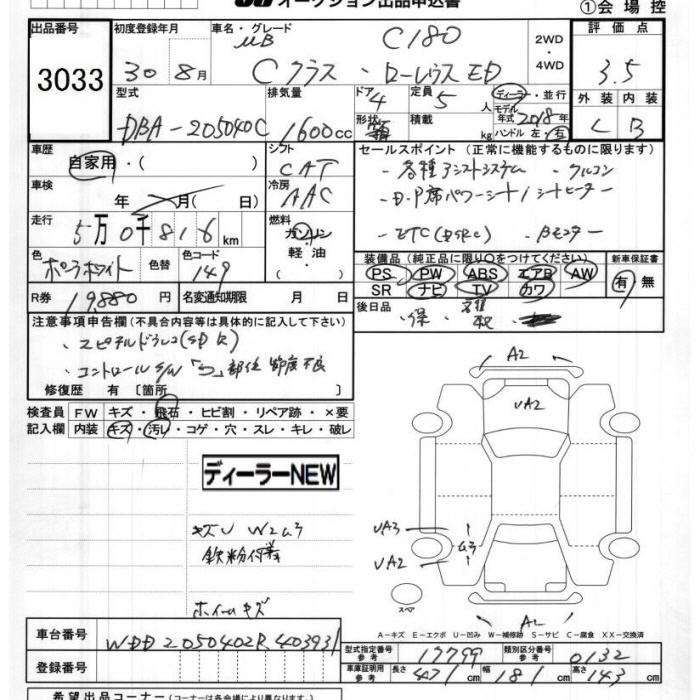 オークション出品申込書
①会場控
出品番号
3033
初度登録年月
30 8月
車名・グレード
C180
Cクラス・ローレウスED
2WD
・4WD
評価点
3.5
外装 内装
C B
型式
DBA-205040C
排気量
1600cc
ドア
4
形状
箱
定員
5 人
積載
kg
ディーラー・並行
モデル年式 2018年
ハンドル 左・右
車歴
自家用・( )
シフト
CAT
セールスポイント(正常に機能するものに限ります)
・各種アシストシステム ・クルコン
・D.P席パワーシート/シートヒーター
・ETC(DSRC) ・Bモニター
車検
年 月( 日)
冷房
AAC
走行
5万0千816km
燃料
ガソリン
軽油
・( )
色
ポーラホワイト
色替
色コード
149
装備品(純正品に限り○をつけてください)
PS PW ABS エアB AW
SR ナビ TV カワ
新車保証書
有・無
R券
19,880円
名変通知期限 月 日
後日品
・保
注意事項申告欄(不具合内容等は具体的に記入して下さい)
・スピチルドラレコ(SD欠)
・コントロールS/W「つ」部位 節度不良
修復歴 有〔箇所 〕
検査員
記入欄
FW キズ・飛石・ヒビ割・リペア跡・×要
内装 キズ・汚レ・コゲ・穴・スレ・キレ・破レ
ディーラーNEW
キズU W2ムラ
鉄粉付着
ホイールキズ
A2
UA2
UA3
ムラ
UA2
スペア
A2
A-キズ E-エクボ U-凹み W-補修跡 S-サビ C-腐食 XX-交換済
車台番号
WDD2050402R403931
登録番号
型式指定番号
参考
17799
類別区分番号
参考
0132
車庫証明用
参考
長さ 471cm
幅 181cm
高さ 143cm
希望出品コーナー(コーナーは各会場により異なります)